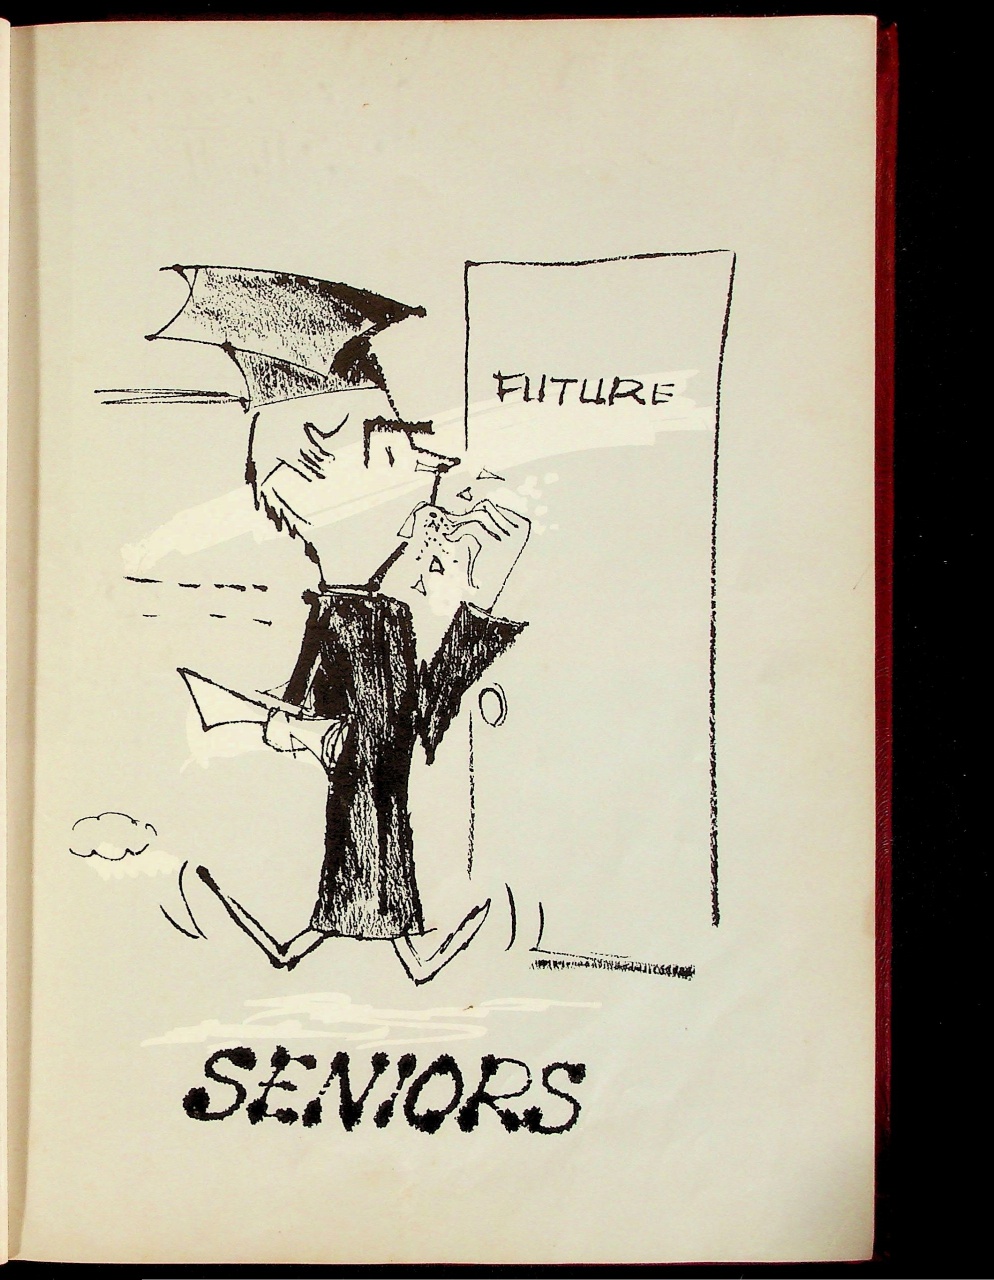 FUTURE
SENIORS